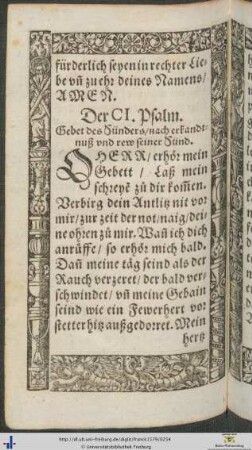 fürderlich seyen in rechter Lie-
be vñ zu ehr deines Namens/
AMEN.
Der CI. Psalm.
Gebet des Sünders/nach erkandt-
nuß vnd rew seiner Sünd.
O HERR/erhör mein
Gebett / Laß mein
schreyẽ zů dir kom̃en.
Verbirg dein Antlitz nit vor
mir/zur zeit der not/naig/dei-
ne ohren zů mir. Wañ ich dich
anrüffe/ so erhör mich bald.
Dañ meine täg seind als der
Rauch verzeret/ der bald ver-
schwindet/ vñ meine Gebain
seind wie ein Fewerhert vor
stetter hitz außgedorret. Mein
hertz
http://dl.ub.uni-freiburg.de/diglit/franck1579/0254
© Universitätsbibliothek Freiburg